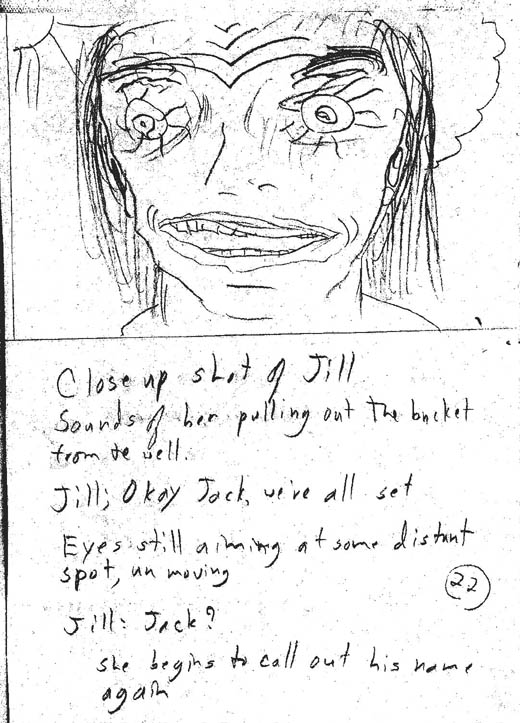 Close up shot of Jill
Sounds of her pulling out the bucket
from te well.
Jill; Okay Jack, we're all set
Eyes still aiming at some distant
spot, un moving
22
Jill: Jack?
she begins to call out his name
again